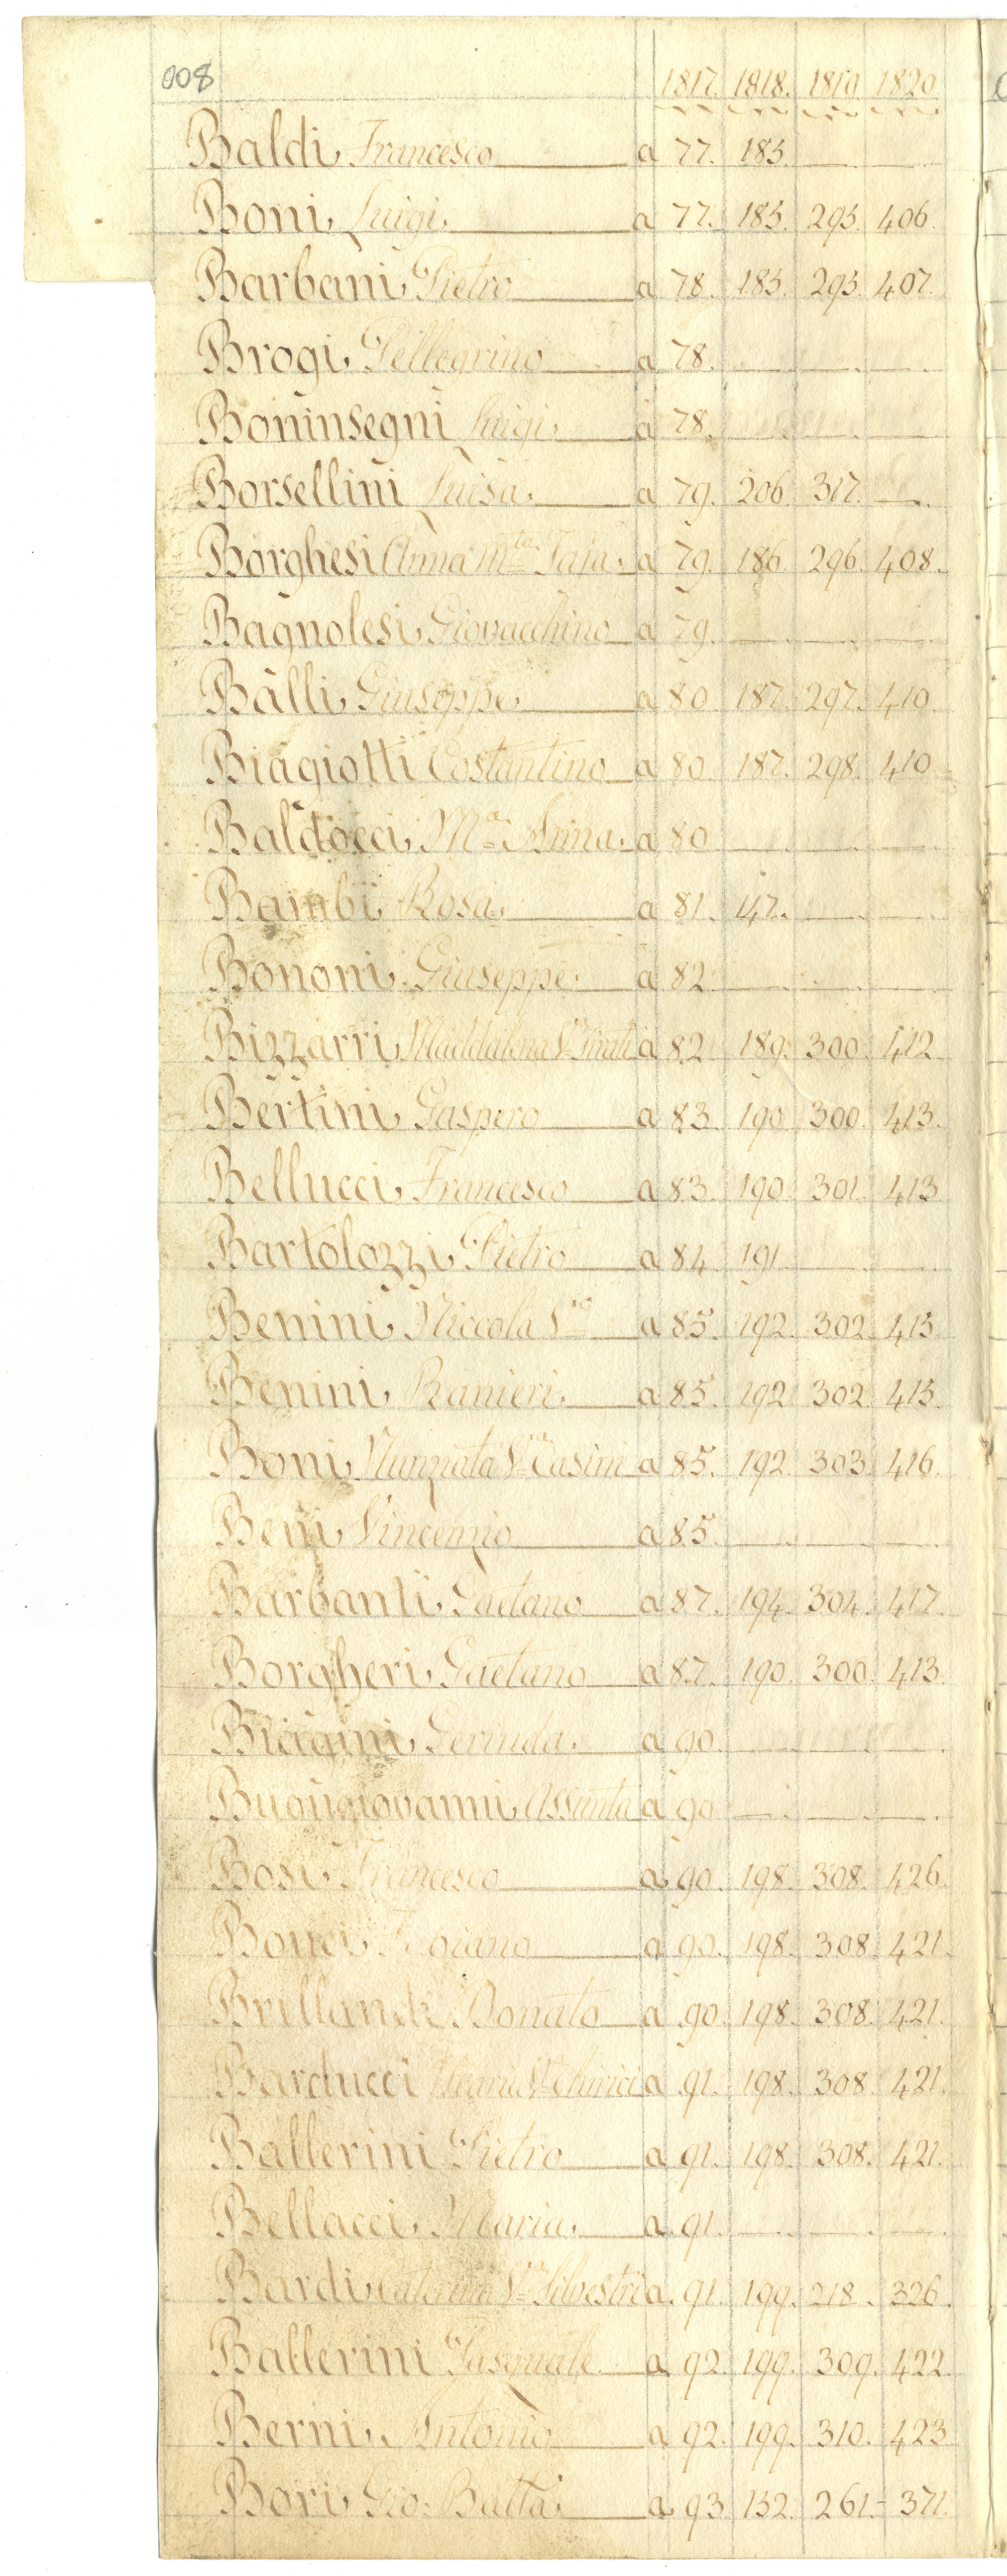 008 1817. 1818. 1819 1820.
Baldi Francesco a 77. 185.
Boni Luigi a 77. 185. 295. 406.
Barbani Pietro a 78. 185. 295. 407.
Brogi Pellegrino a 78.
Boninsegni Luigi a 78.
Borsellini Luisa a 79. 206. 317.
Borghesi Anna M.ta Jaja a 79. 186. 296. 408.
Bagnolesi Giovacchino a 79.
Balli Giuseppe a 80. 187. 297. 410.
Biagiotti Costantino a 80. 187. 298. 410
Baldocci M.a Anna a 80
Bambi Rosa a 81. 147.
Bononi Giuseppe a 82
Bizzarri Maddalena V.a a 82 189. 300. 412
Bertini Gaspero a 83. 190 300. 413.
Bellucci Francesco a 83. 190. 301. 413
Bartolozzi Pietro a 84 191
Benini Niccola V.a a 85. 192. 302. 415
Benini Ranieri a 85. 192. 302. 415.
Boni Nunziata V.a Casini a 85. 192. 303. 416.
Beni Vincenzio a 85.
Barbanti Gaetano a 87. 194. 304. 417.
Borgheri Gaetano a 87. 190. 300. 413.
Biagini Gerinda a 90.
Buongiovanni Assunta a 90
Bosi Francesco a 90. 198. 308. 426.
Bonci a 90. 198. 308. 421.
Brillandi Donato a 90. 198. 308. 421.
Barducci V.a Chirici a 91. 198. 308. 421.
Ballerini Pietro a 91. 198. 308. 421.
Bellacci Maria a 91.
Bardi Caterina V.a Silvestri a 91. 199. 218. 326.
Ballerini Pasquale a 92. 199. 309. 422.
Berni Antonio a 92. 199. 310. 423
Bori Gio: Batta a 93. 132. 261. 371.